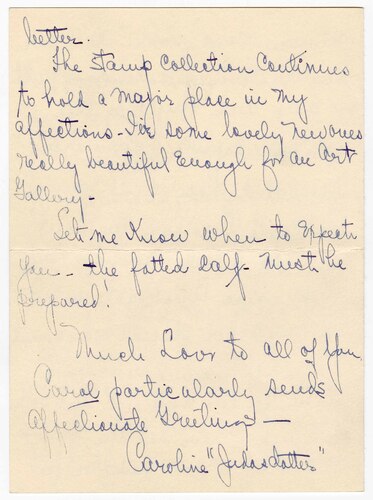 better.
The Stamp Collection Continues
to hold a Major place in my
affections - I've some lovely new ones
really beautiful Enough for an Art
Gallery -
Let me Know when to Expect
you - the fatted calf - must be
prepared!
Much Love to all of you
Carol particularly sends
affectionate Greetings -
Caroline "Judasdotter"